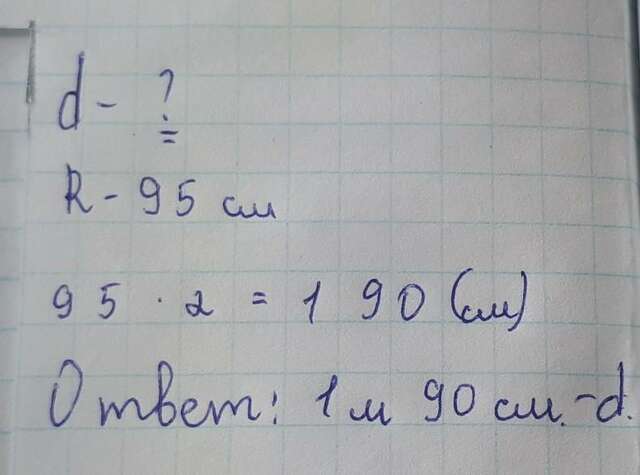 d - ?
R - 95 см
95 · 2 = 190 (см)
Ответ: 1 м 90 см. - d.